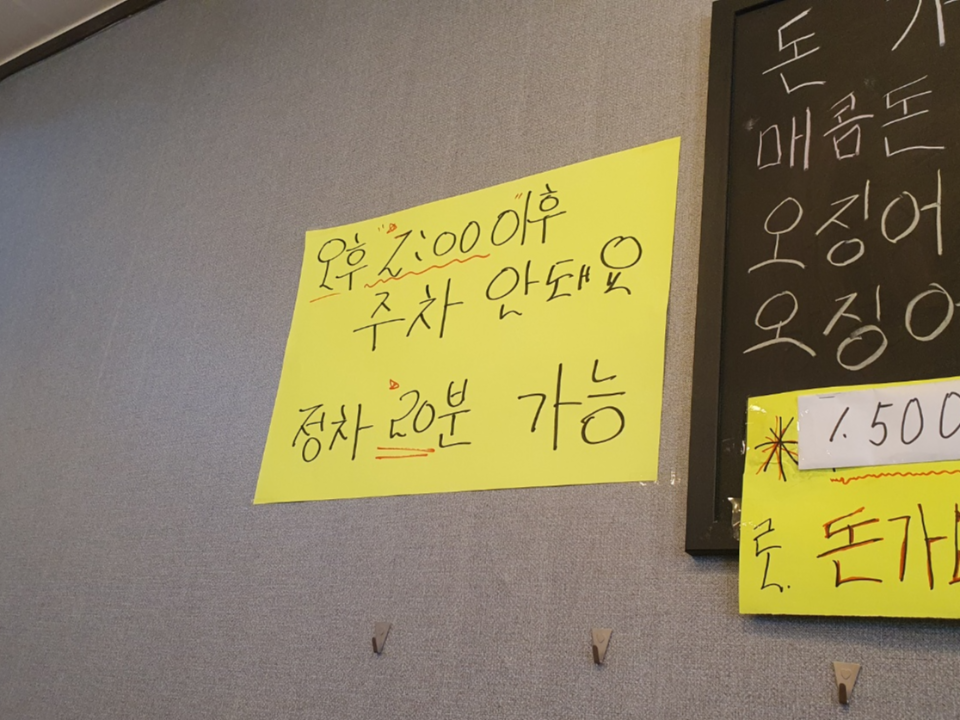 오후 "2:00" 이후
주차 안돼요
정차 20분 가능
돈 가
매콤돈
오징어
오징어
※ 1.500
로. 돈가